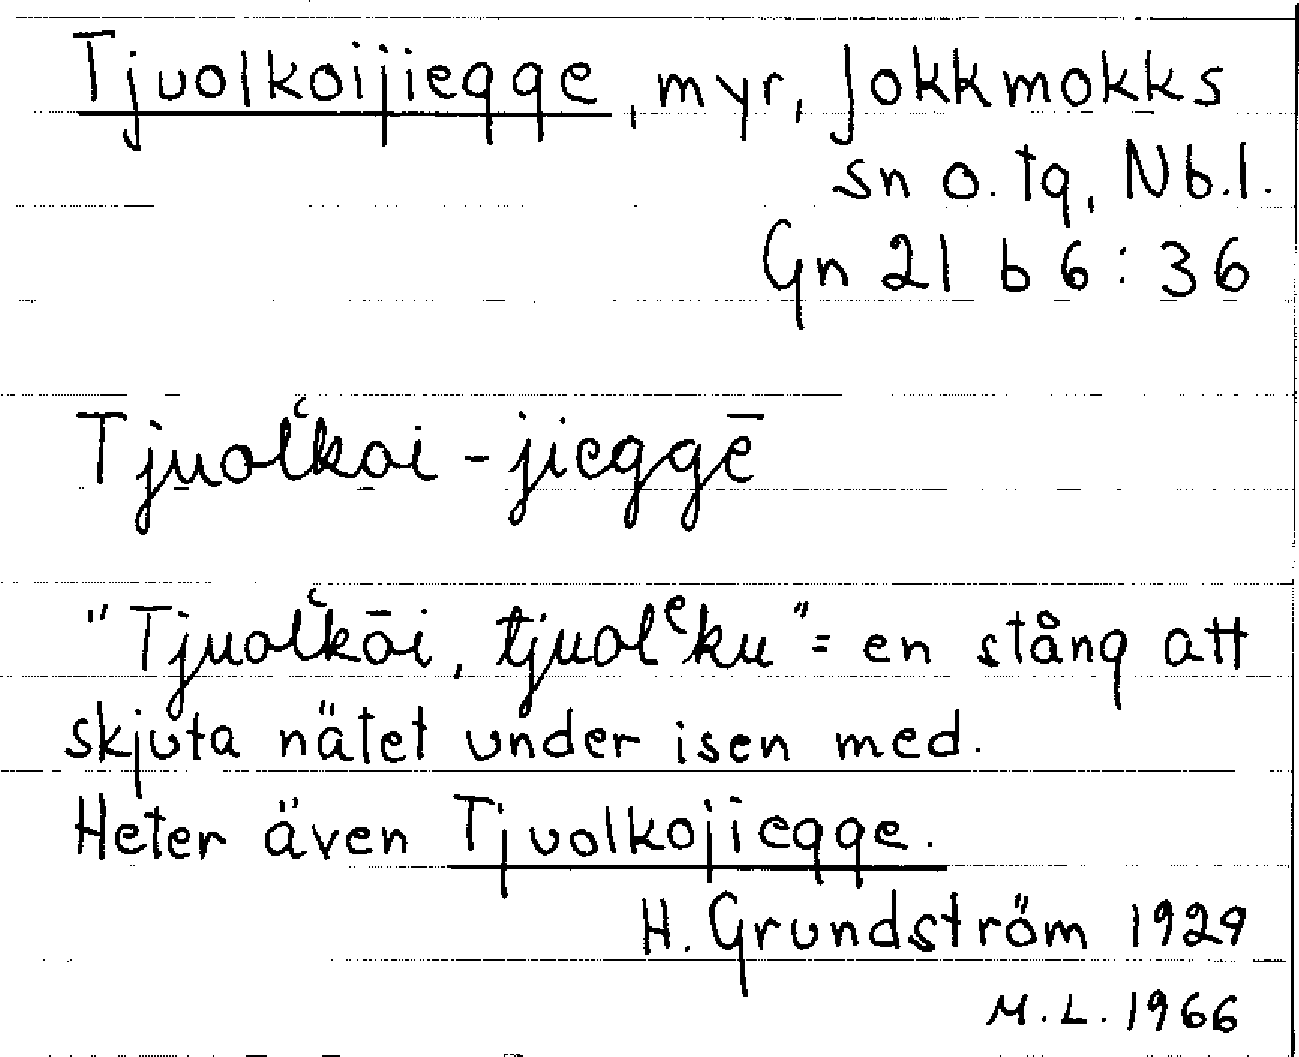 Tjuolkoijiegge, myr, Jokkmokks
sn o. tg, Nb.l.
Gn 21 b 6:36
Tjuolʿkoi-jieggē
"Tjuolʿkōi, tjuolᵉku" = en stång att
skjuta nätet under isen med.
Heter även Tjuolkojiegge.
H. Grundström 1929
M.L. 1966